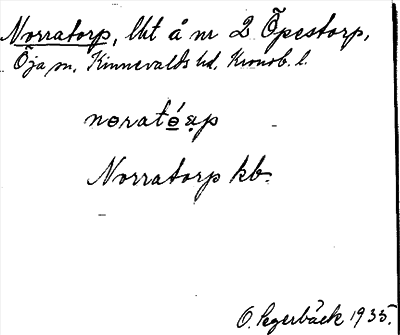 Norratorp, lht å nr 2 Öpestorp,
Öja sn, Kinnevalds hd, Kronob. l.
Norratorp kb.
O. Segerbäck 1935.